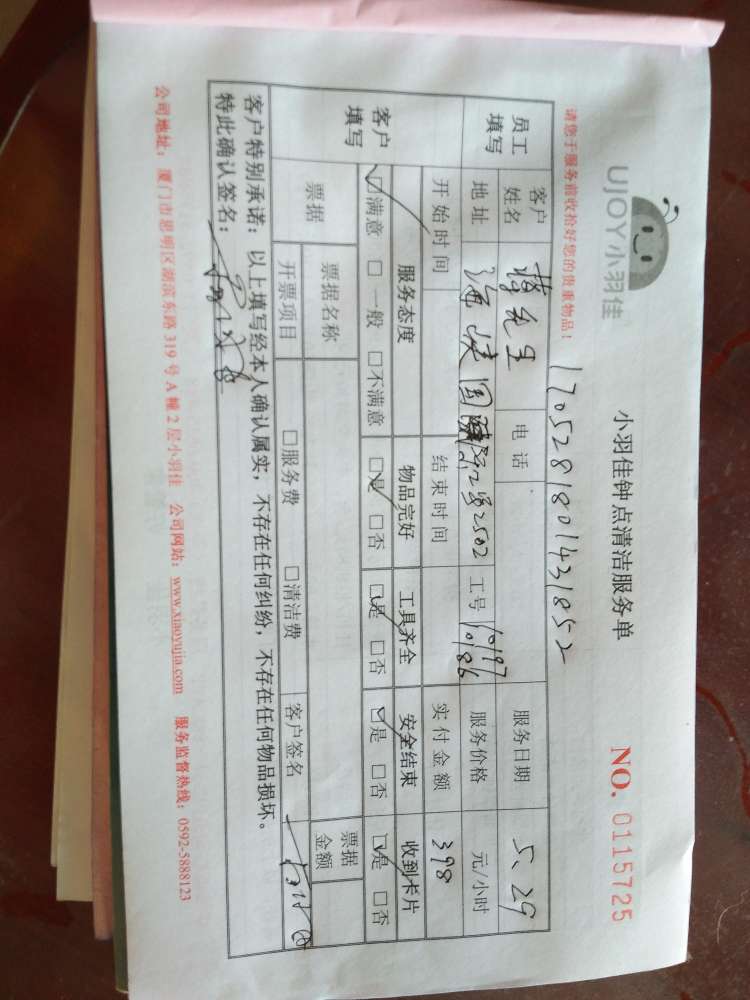 UJOY小羽佳
小羽佳钟点清洁服务单
NO. 0115725
请您于服务前收拾好您的贵重物品！
1705281801431852
员工填写 客户姓名 先生 电话 服务日期 5.29
地址 海峡国际 2502 工号 10197 10186 服务价格 元/小时
开始时间 结束时间 实付金额 398
客户填写 服务态度 物品完好 工具齐全 安全结束 收到卡片
☑满意 □一般 □不满意 ☑是 □否 ☑是 □否 ☑是 □否 ☑是 □否
票据 票据名称 票据金额
开票项目 □服务费 □清洁费 客户签名
客户特别承诺：以上填写经本人确认属实，不存在任何纠纷，不存在任何物品损坏。
特此确认签名：
公司地址：厦门市思明区湖滨东路319号A幢2层小羽佳 公司网站：www.xiaoyujia.com 服务监督热线：0592-5888123